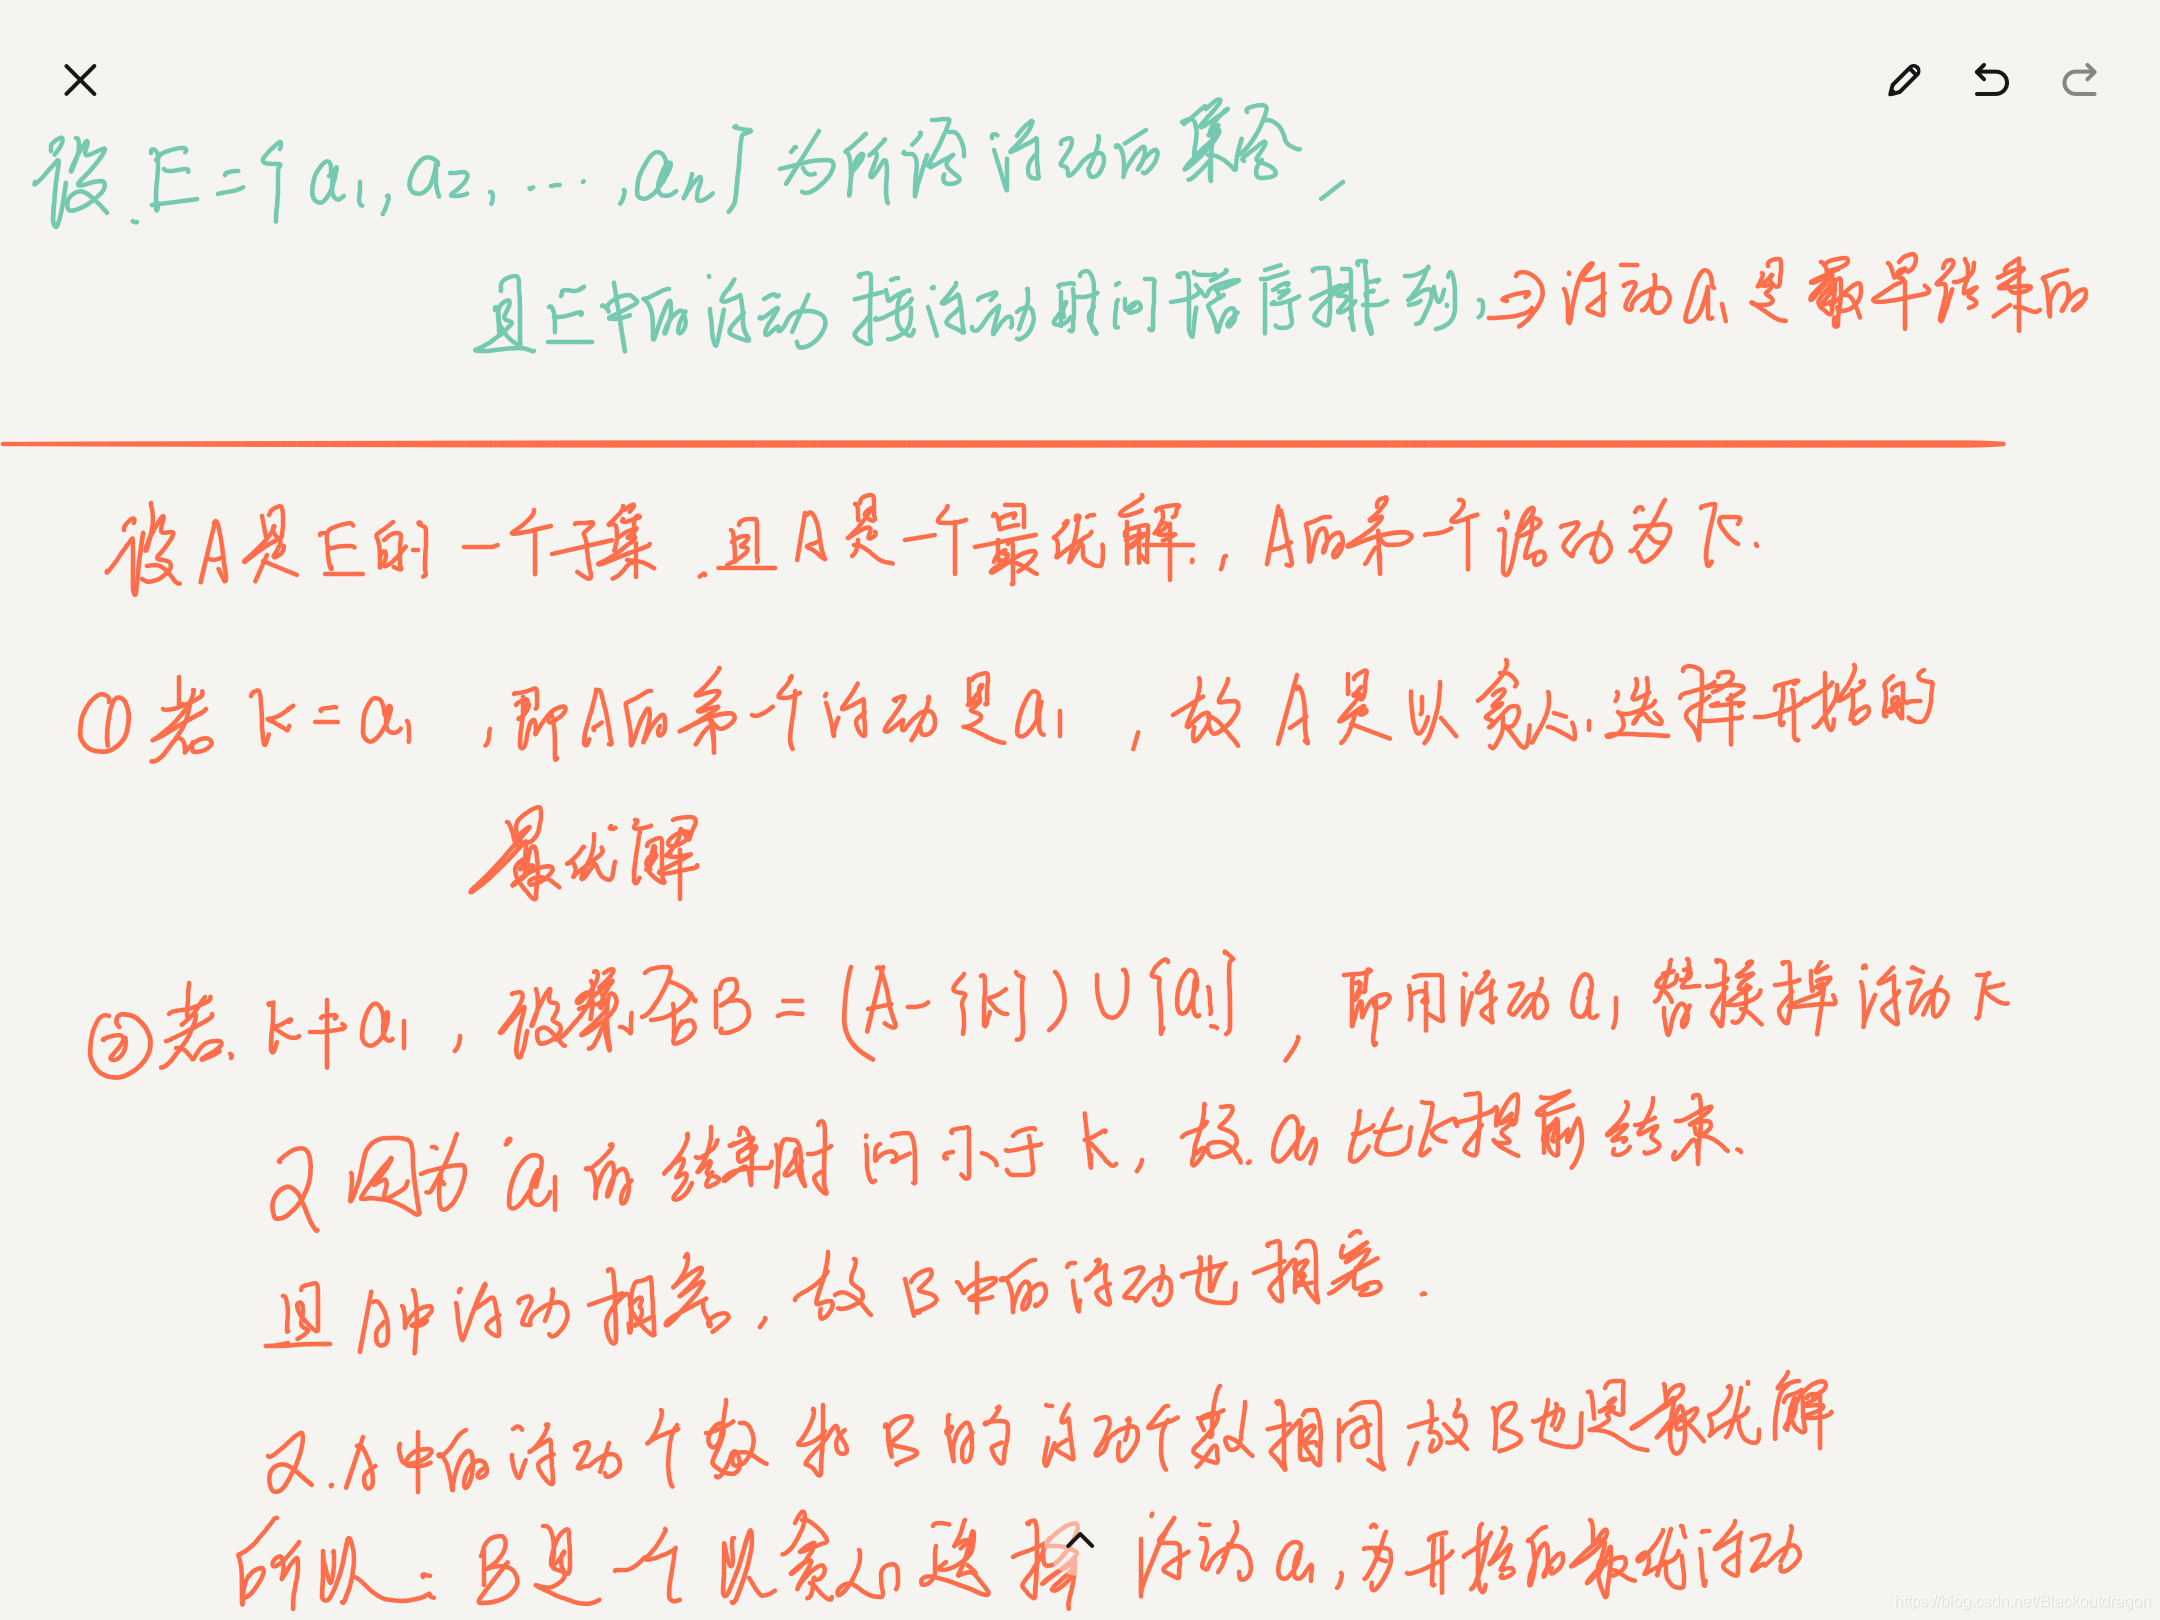 设.E={a1,a2,...,an}为所给活动的集合,
且E中的活动按活动时间增序排列,⇒活动a1是最早结束的
设A是E的一个子集.且A是一个最优解.,A的第一个活动为k.
①若k=a1,即A的第一个活动是a1,故A是以贪心选择开始的
最优解
②若.k≠a1,设集合B=(A-{k})∪{a1},即用活动a1替换掉活动k
又因为a1的结束时间小于k,故.a1比k提前结束.
且A中活动相容,故B中的活动也相容.
又.A中的活动个数和B的活动个数相同故B也是最优解
所以:B是一个以贪心选择活动a1,为开始的最优活动
https://blog.csdn.net/Blackoutdragon